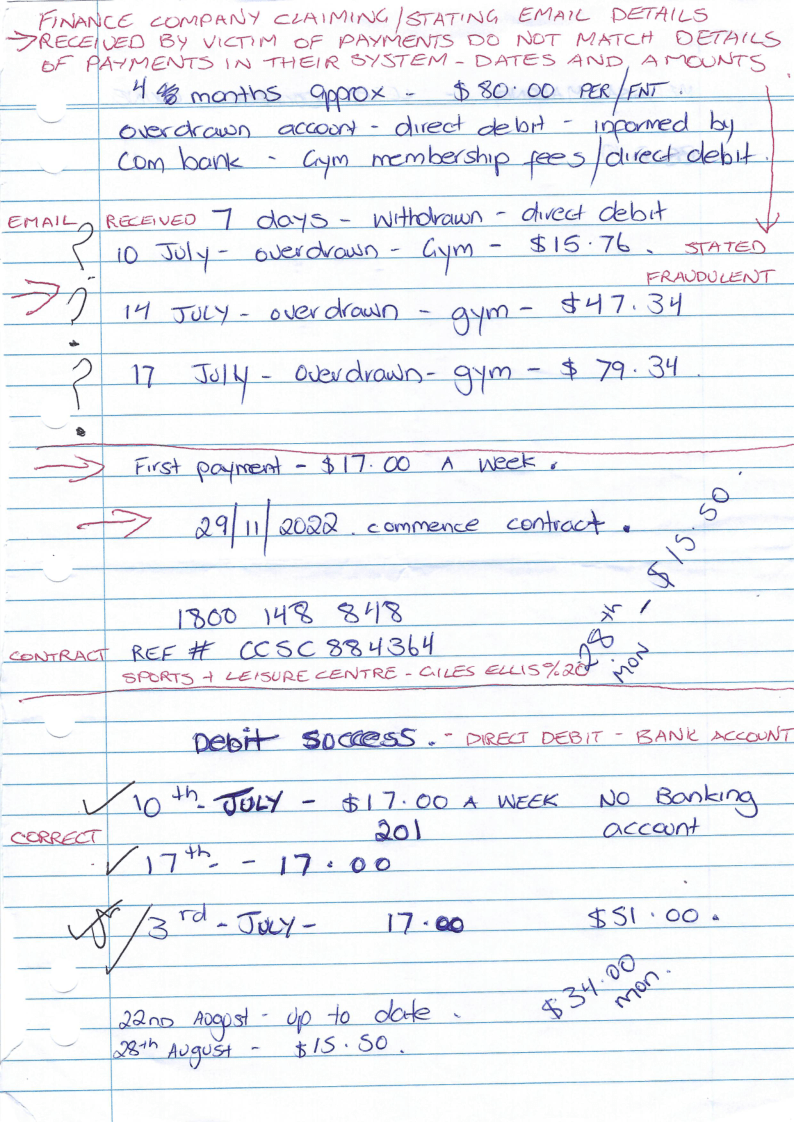 FINANCE COMPANY CLAIMING/STATING EMAIL DETAILS
→RECEIVED BY VICTIM OF PAYMENTS DO NOT MATCH DETAILS
OF PAYMENTS IN THEIR SYSTEM - DATES AND AMOUNTS
4 months approx - $80.00 PER/FNT.
overdrawn account - direct debit - informed by
Com bank - Gym membership fees/direct debit.
EMAIL RECEIVED 7 days - withdrawn - direct debit
? 10 July - overdrawn - Gym - $15.76. STATED
FRAUDULENT
→ ? 14 JULY - overdrawn - gym - $47.34
? 17 July - overdrawn - gym - $ 79.34.
→ First payment - $17.00 A week.
→ 29/11/2022. commence contract.
28th - $15.50
mon
1800 148 848
CONTRACT REF # CCSC884364
SPORTS + LEISURE CENTRE - GILES ELLIS%20
Debit Success. - DIRECT DEBIT - BANK ACCOUNT
✓ 10th - JULY - $17.00 A WEEK NO Banking
CORRECT 201 account
✓ 17th - - 17.00
✓ 3rd - JULY - 17.00 $51.00.
$34.00
mon.
22nd August - up to date.
28th August - $15.50.